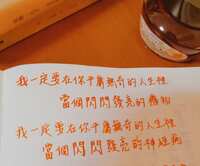 我一定要在你平庸無奇的人生裡
當個閃閃發亮的廢物
我一定要在你平庸無奇的人生裡
當個閃閃發亮的神經病